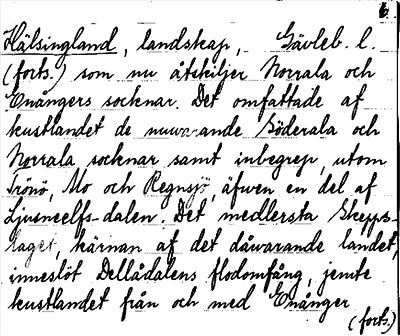 6.
Hälsingland, landskap, Gävleb. l.
(forts.) som nu åtskiljer Norrala och
Enångers socknar. Det omfattade af
kustlandet de nuwarande Söderala och
Norrala socknar samt inbegrep, utom
Trönö, Mo och Regnsjö, äfwen en del af
Ljusneelfs-dalen. Det medlersta Skepps-
laget, kärnan af det dåwarande landet,
inneslöt Dellådalens flodomfång, jemte
kustlandet från och med Enånger
(forts.)